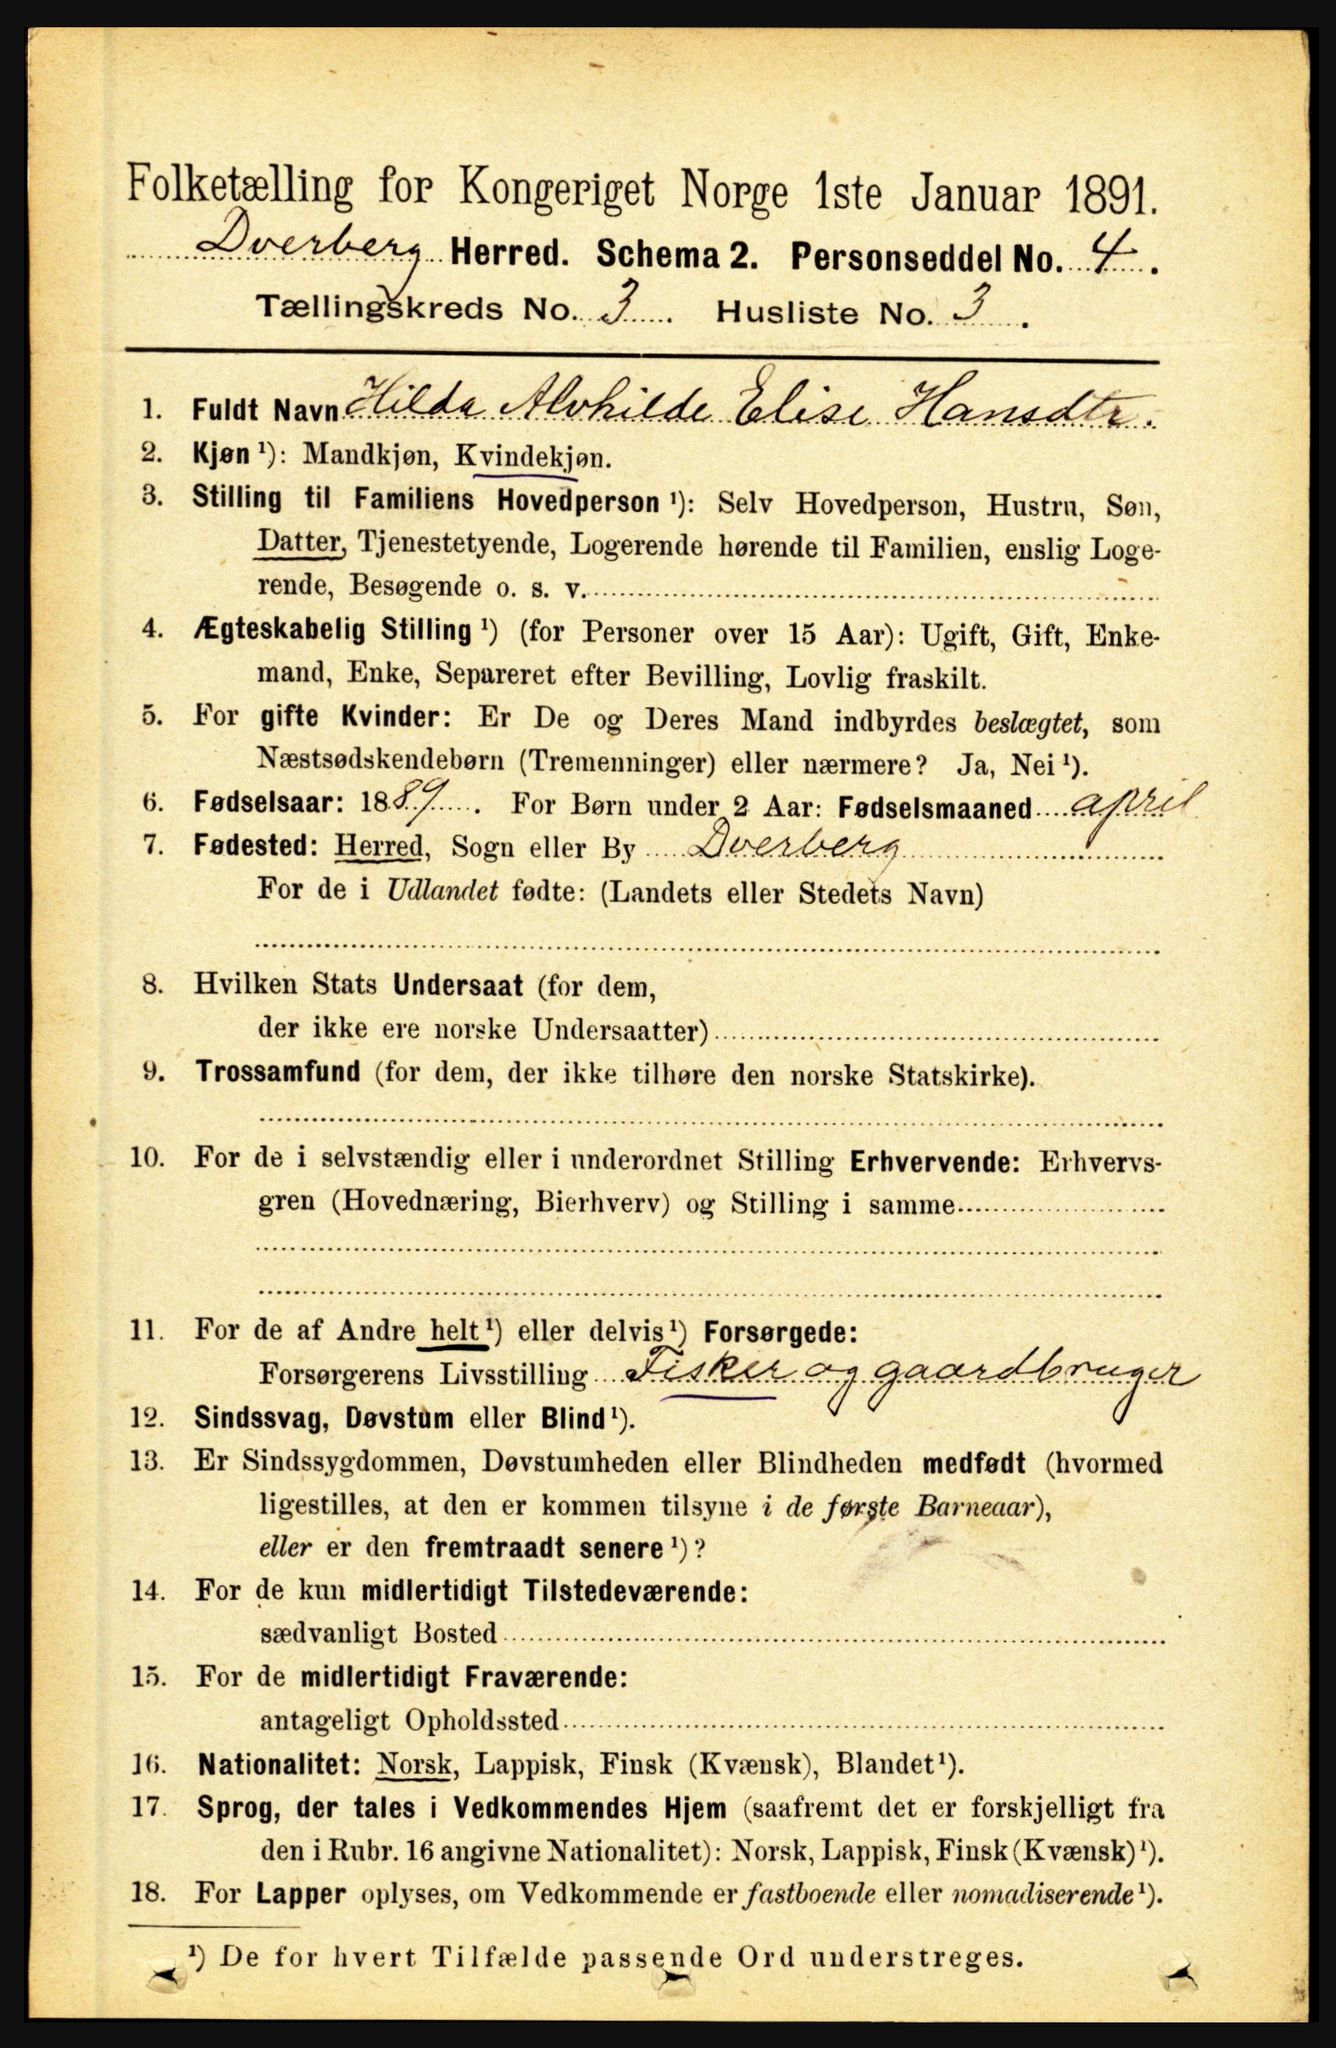 Folketælling for Kongeriget Norge 1ste Januar 1891.
Dverberg Herred. Schema 2. Personseddel No. 4.
Tællingskreds No. 3. Husliste No. 3.
1. Fuldt Navn Hilda Alvhilde Elise Hansdtr.
2. Kjøn ¹): Mandkjøn, Kvindekjøn.
3. Stilling til Familiens Hovedperson ¹): Selv Hovedperson, Hustru, Søn,
Datter, Tjenestetyende, Logerende hørende til Familien, enslig Loge-
rende, Besøgende o. s. v.
4. Ægteskabelig Stilling ¹) (for Personer over 15 Aar): Ugift, Gift, Enke-
mand, Enke, Separeret efter Bevilling, Lovlig fraskilt.
5. For gifte Kvinder: Er De og Deres Mand indbyrdes beslægtet, som
Næstsødskendebørn (Tremenninger) eller nærmere? Ja, Nei ¹).
6. Fødselsaar: 1889. For Børn under 2 Aar: Fødselsmaaned april
7. Fødested: Herred, Sogn eller By Dverberg
For de i Udlandet fødte: (Landets eller Stedets Navn)
8. Hvilken Stats Undersaat (for dem,
der ikke ere norske Undersaatter)
9. Trossamfund (for dem, der ikke tilhøre den norske Statskirke).
10. For de i selvstændig eller i underordnet Stilling Erhvervende: Erhvervs-
gren (Hovednæring, Bierhverv) og Stilling i samme
11. For de af Andre helt ¹) eller delvis ¹) Forsørgede:
Forsørgerens Livsstilling Fisker og gaardbruger
12. Sindssvag, Døvstum eller Blind ¹).
13. Er Sindssygdommen, Døvstumheden eller Blindheden medfødt (hvormed
ligestilles, at den er kommen tilsyne i de første Barneaar),
eller er den fremtraadt senere ¹)?
14. For de kun midlertidigt Tilstedeværende:
sædvanligt Bosted
15. For de midlertidigt Fraværende:
antageligt Opholdssted
16. Nationalitet: Norsk, Lappisk, Finsk (Kvænsk), Blandet ¹).
17. Sprog, der tales i Vedkommendes Hjem (saafremt det er forskjelligt fra
den i Rubr. 16 angivne Nationalitet): Norsk, Lappisk, Finsk (Kvænsk) ¹).
18. For Lapper oplyses, om Vedkommende er fastboende eller nomadiserende ¹).
¹) De for hvert Tilfælde passende Ord understreges.